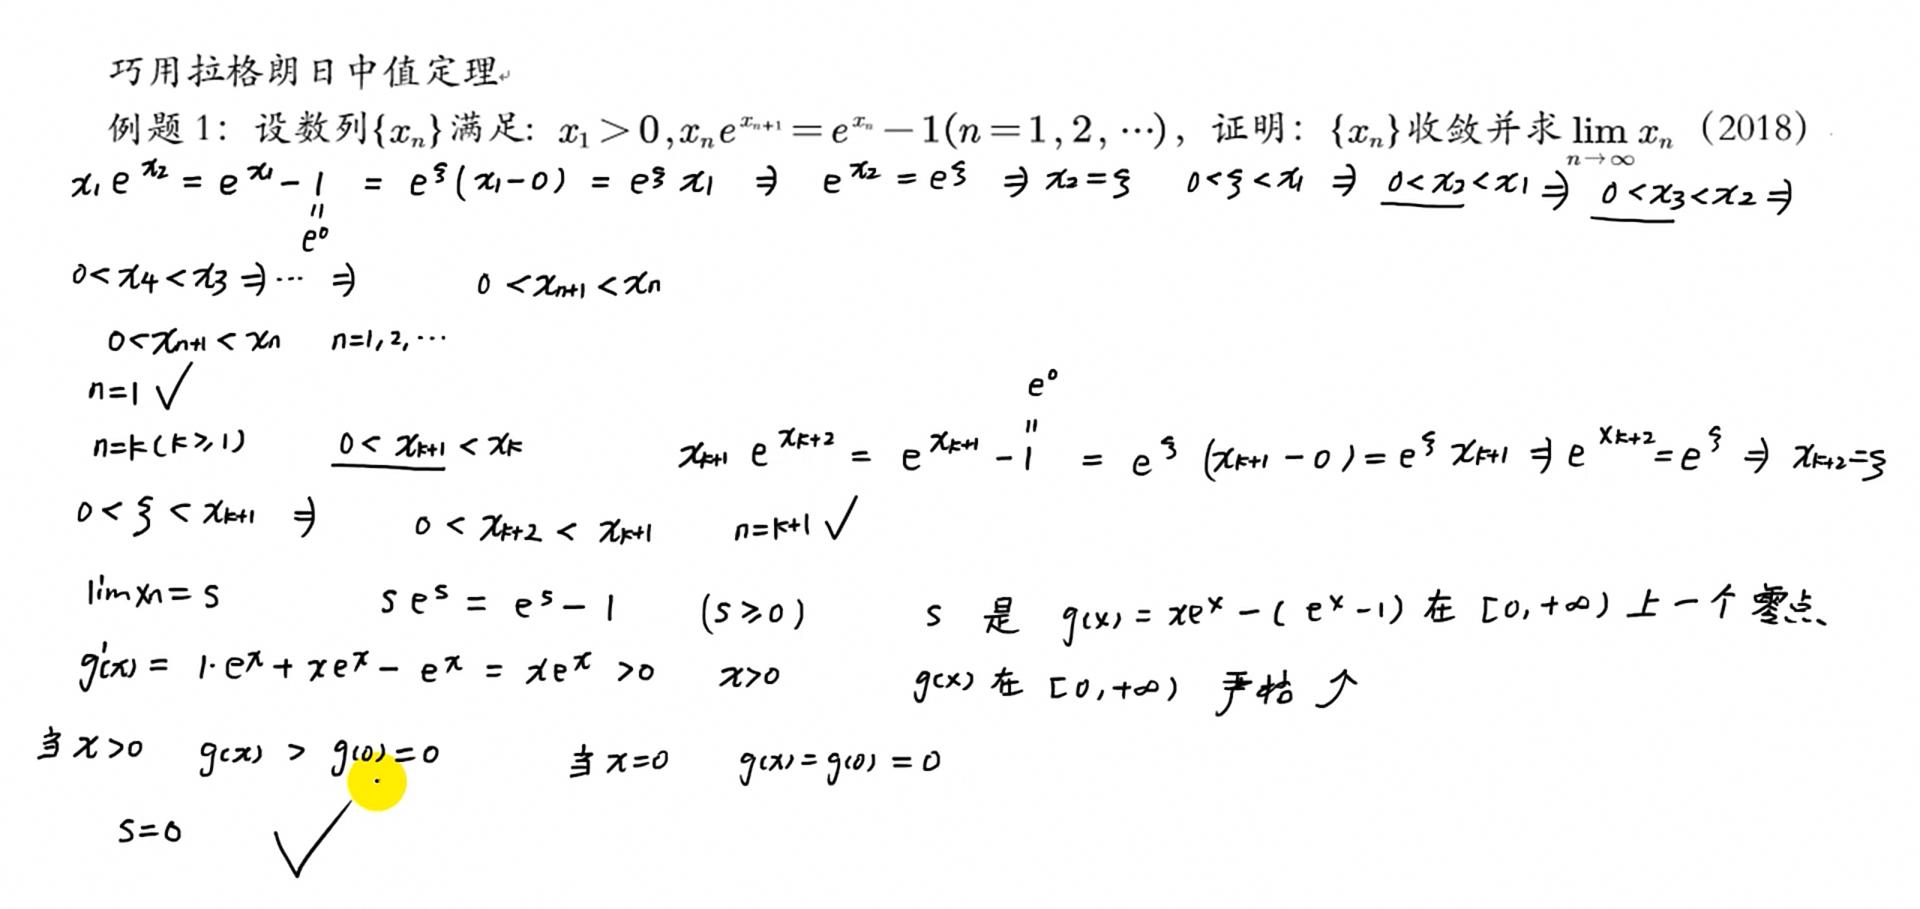 巧用拉格朗日中值定理
例题1: 设数列{xₙ}满足: x₁>0, xₙe^{xₙ₊₁}=e^{xₙ}-1(n=1,2,…), 证明: {xₙ}收敛并求 lim_{n→∞} xₙ (2018)
x₁e^{x₂} = e^{x₁} - 1 = e^ξ(x₁-0) = e^ξ x₁ ⇒ e^{x₂} = e^ξ ⇒ x₂=ξ 0<ξ<x₁ ⇒ 0<x₂<x₁ ⇒ 0<x₃<x₂ ⇒
"
e⁰
0<x₄<x₃ ⇒ ⋯ ⇒ 0<xₙ₊₁<xₙ
0<xₙ₊₁<xₙ n=1,2,⋯
n=1 ✓ e⁰
"
n=k(k≥1) 0<x_{k+1}<x_k x_{k+1}e^{x_{k+2}} = e^{x_{k+1}} - 1 = e^ξ(x_{k+1}-0) = e^ξ x_{k+1} ⇒ e^{x_{k+2}} = e^ξ ⇒ x_{k+2}=ξ
0<ξ<x_{k+1} ⇒ 0<x_{k+2}<x_{k+1} n=k+1 ✓
lim xₙ = s se^s = e^s - 1 (s≥0) s 是 g(x) = xe^x - (e^x - 1) 在 [0,+∞) 上一个零点
g'(x) = 1·e^x + xe^x - e^x = xe^x >0 x>0 g(x) 在 [0,+∞) 严格 ↑
当 x>0 g(x) > g(0) = 0 当 x=0 g(x) = g(0) = 0
s=0 ✓